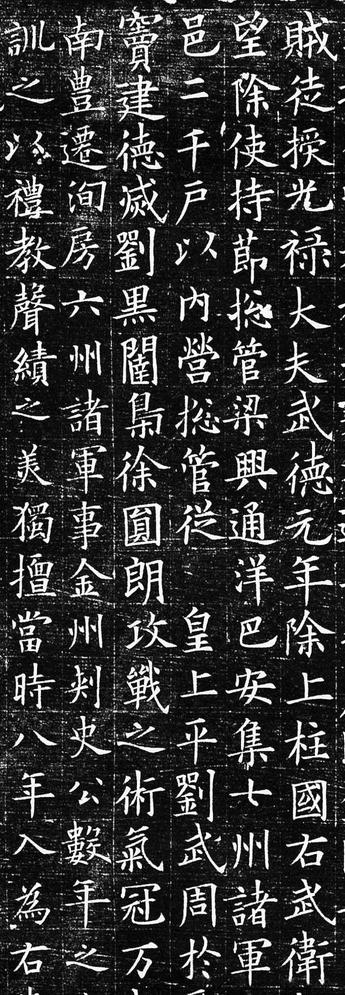 賊徒授光祿大夫武德元年除上柱國右武衛
望除使持節揔管梁興通洋巴安集七州諸軍
邑二千戶以內營揔管從皇上平劉武周於
竇建德滅劉黑闥梟徐圓朗攻戰之術氣冠万
南豊遷洵房六州諸軍事金州刾史公數年之
訓之以禮教聲績之美獨擅當時八年入為右